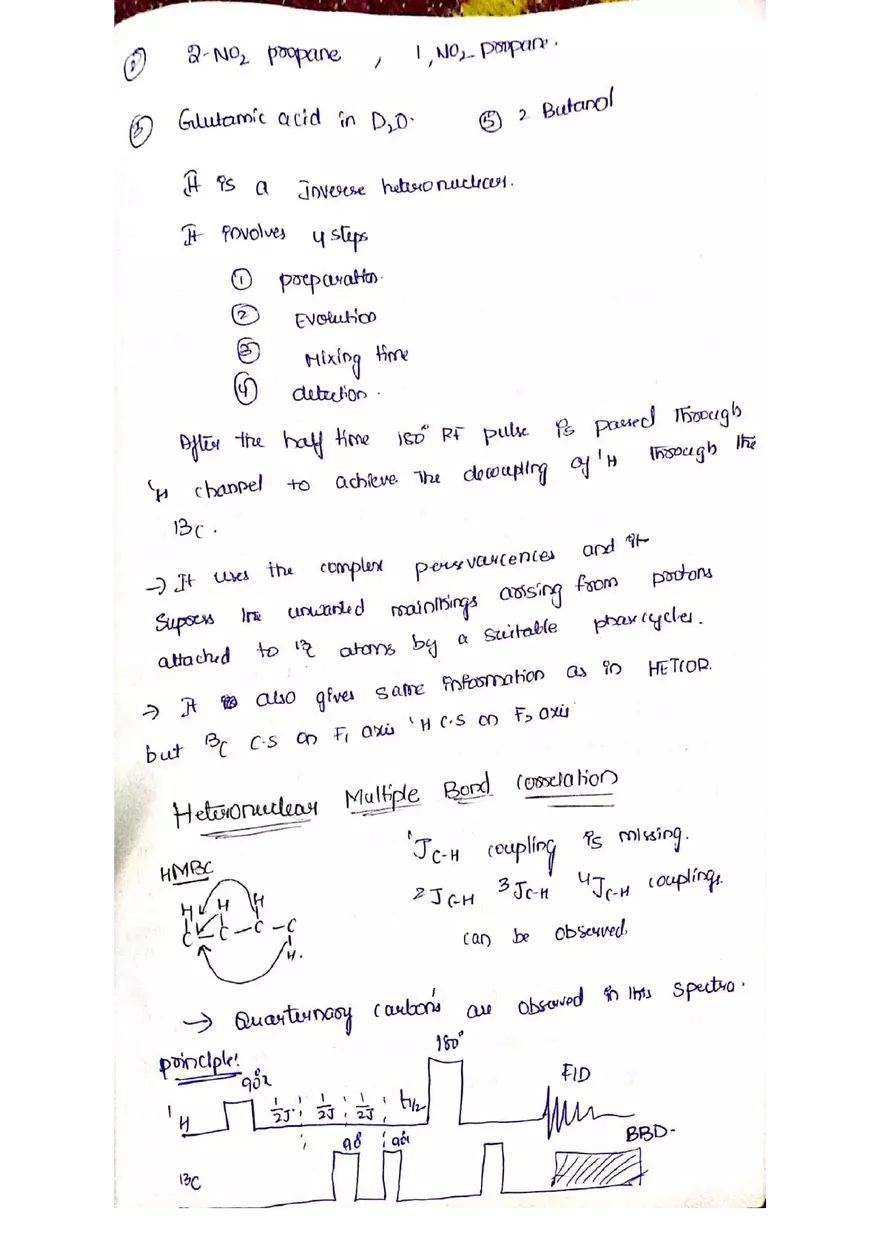 ② 2-NO2 propane , 1,NO2-propane.
③ Glutamic acid in D2O. ⑤ 2 Butanol
It is a inverse heteronuclear.
It involves 4 steps
① preparation.
② Evolution
③ Mixing time
④ detection.
After the half time 180° RF pulse is passed through
¹H channel to achieve the decoupling of ¹H through the
13C.
→ It uses the complex and it
Supress the unwanted arising from protons
attached to 12C atoms by a suitable phase cycles.
→ It also gives same information as in HETCOR.
but 13C C.S on F1 axis ¹H C.S on F2 axis
Heteronuclear Multiple Bond Correlation
HMBC
¹JC-H coupling is missing.
2JC-H 3JC-H 4JC-H couplings.
can be observed.
H H H
C-C-C-C
H.
→ Quarternary carbon's are observed in this spectra.
principle:
90°x 180° FID
¹H 1/2J 1/2J 1/2J t1/2
90 90 BBD-
13C